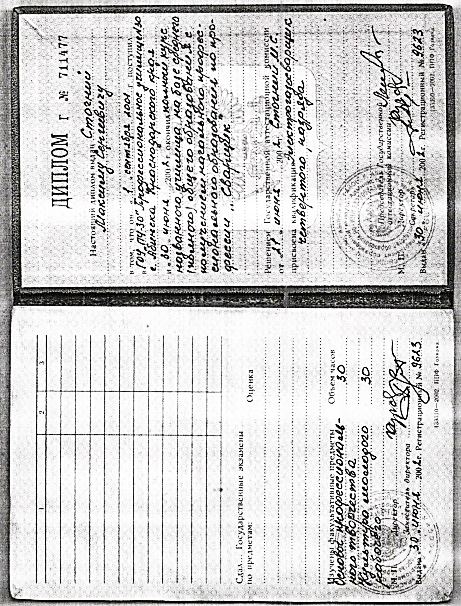 ДИПЛОМ Г № 711477
Настоящий диплом выдан Стогний
Максиму Сергеевичу
в том, что он 1 сентября 2001 г. поступил
и 30 июня 200 г. окончил полный курс
названного училища на базе среднего
(полного) общего образования с
получением начального профес-
сионального образования по про-
фессии „Сварщик"
Решением Государственной аттестационной комиссии
от июня 200 г. Стогний М.С.
присвоена квалификация Электрогазосварщик
четвертого разряда
Председатель Государственной
аттестационной комиссии
Директор
М.П.
Выдан 30 июня 200 г. Регистрационный № 9623
1
2
3
Сдал Государственные экзамены
по предметам:
Оценка
Изучены факультативные предметы
Объем часов
Основы профессиональ-
ного творчества
30
Культура молодого
рабочего
30
М.П. Директор
Заместитель директора
Выдан 30 июня 200 г. Регистрационный № 9623